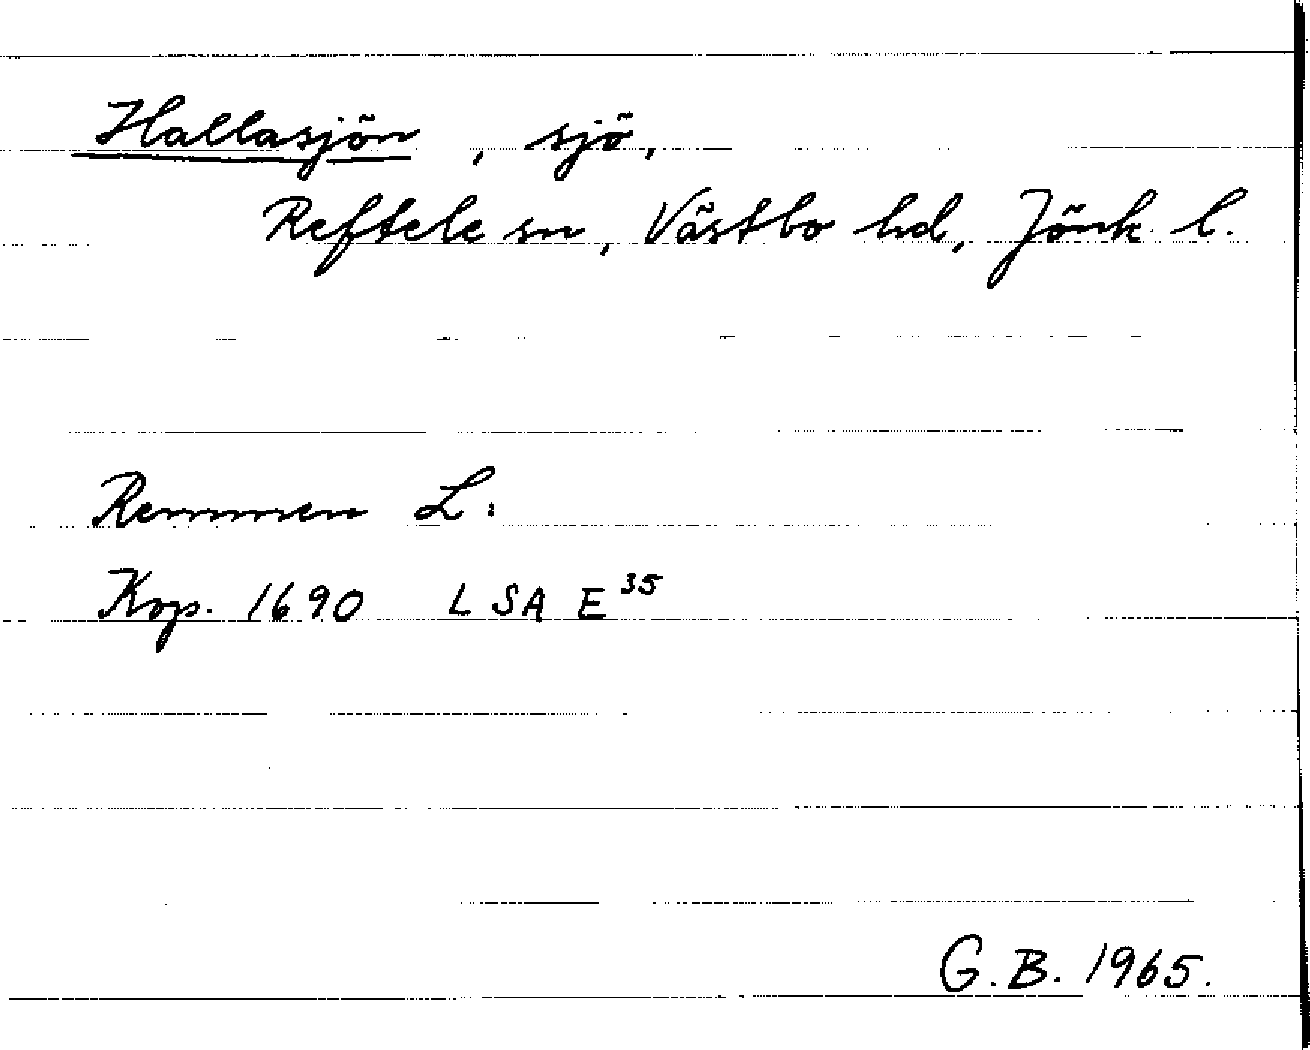 Hallasjön, sjö,
Reftele sn, Västbo hd, Jönk. l.
Remmen L:
Kop. 1690 LSA E 35
G. B. 1965.